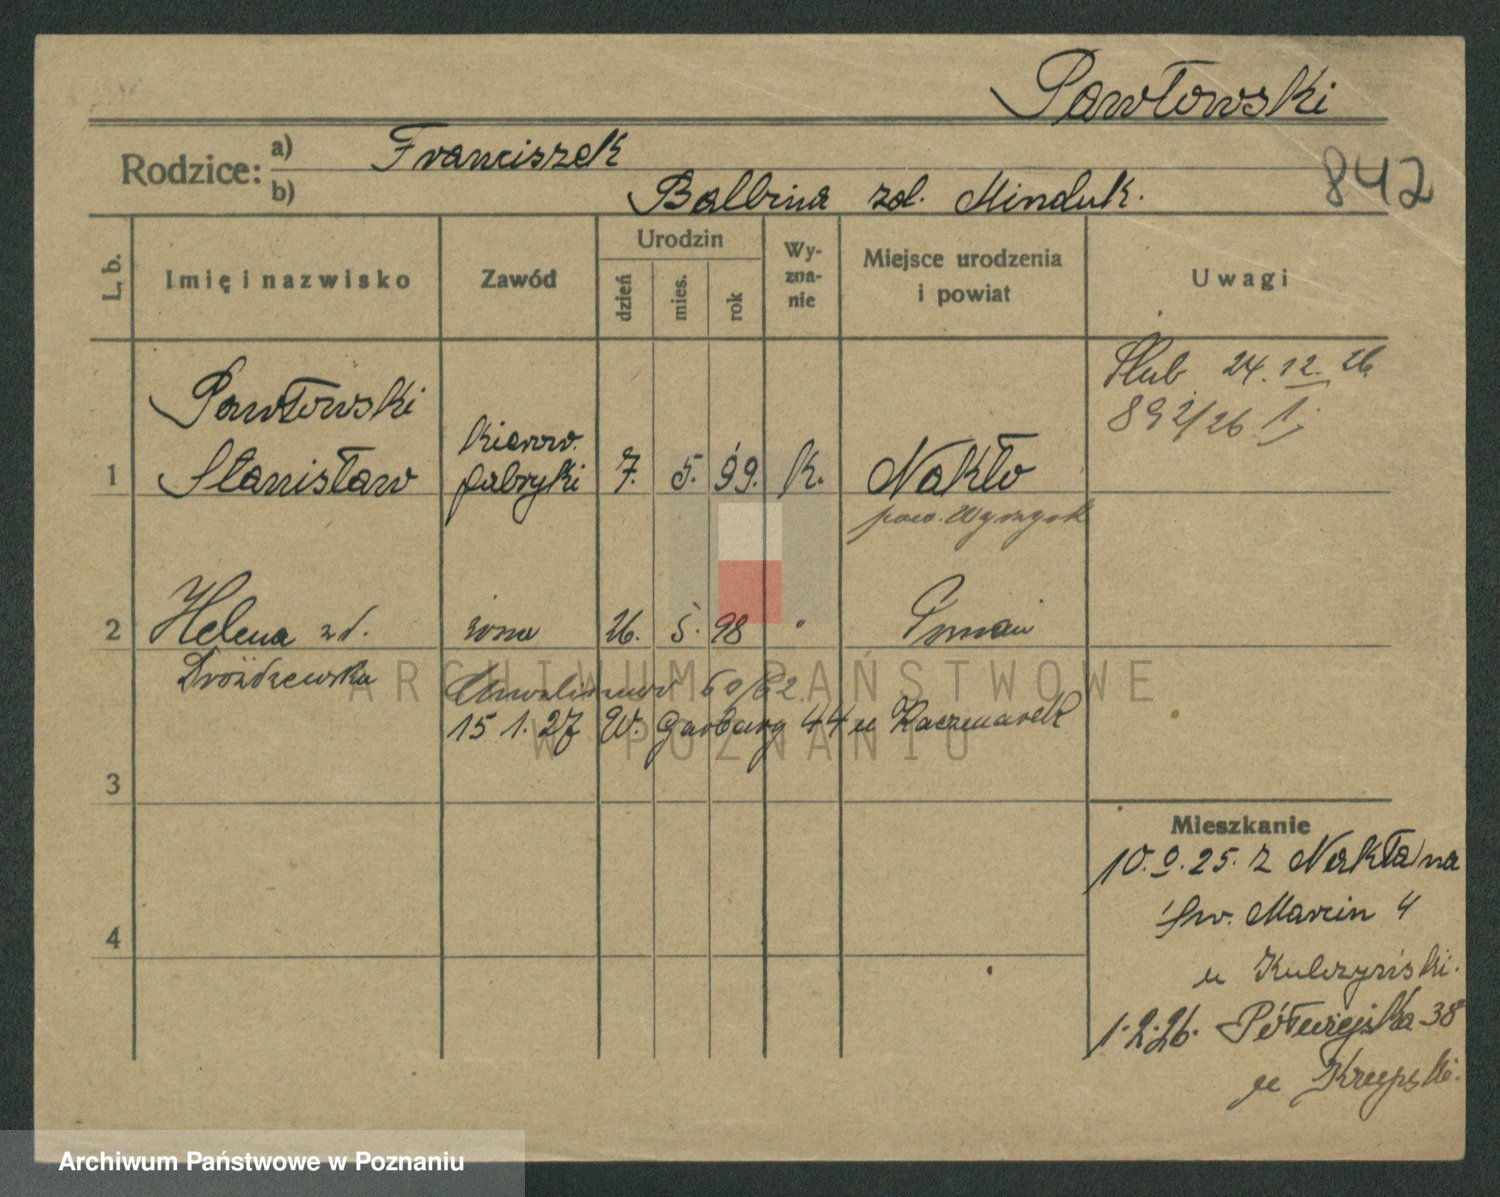 Pawłowski
Rodzice:
a) Franciszek
b) Balbina zd. Minduk.
842
L. b.
Imię i nazwisko
Zawód
Urodzin
dzień
mies.
rok
Wy-
zna-
nie
Miejsce urodzenia
i powiat
Uwagi
1
Pawłowski
Stanisław
kierow.
fabryki
7. 5. 99. k. Nakło
pow. Wyrzysk
Ślub 24. 12. 26.
892/26
2
Helena zd.
Dróżdzewska
żona
26. 5. 98 " Poznań
60/62
15 1. 27 W. Garbary 44 u Kaczmarek
3
4
Mieszkanie
10. 9. 25. z Nakła na
Św. Marcin 4
u Kulczyński.
1. 2. 26. Półwiejska 38
u
ARCHIWUM PAŃSTWOWE
W POZNANIU
Archiwum Państwowe w Poznaniu